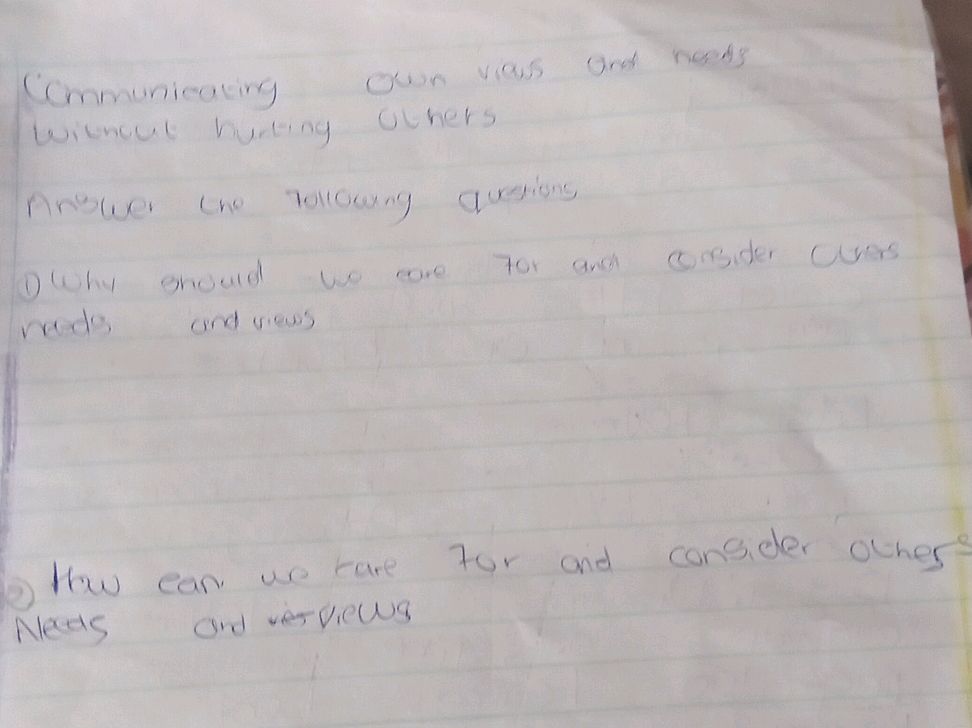 Communicating own views and needs
without hurting others
Answer the following questions
① Why should we care for and consider others
needs and views
② How can we care for and consider others
Needs and views